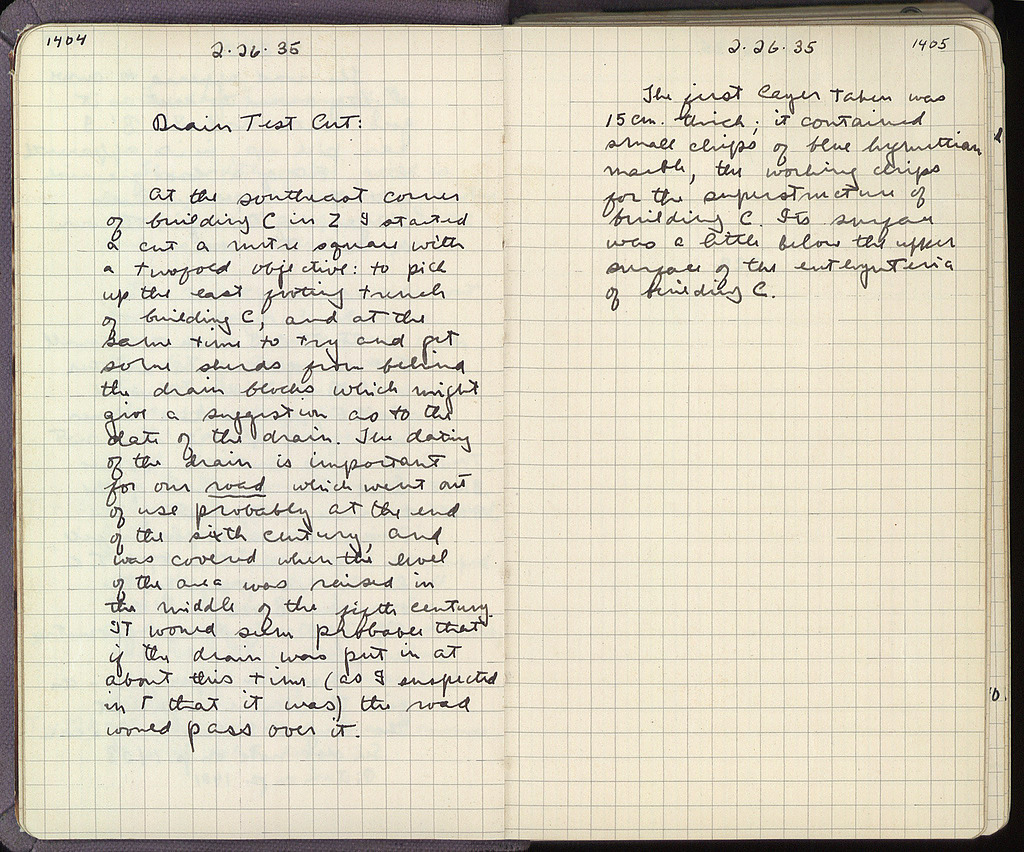 1404
2·26·35
Drain Test Cut:
At the southeast corner
of building C in Z I started
a cut a metre square with
a twofold objective: to pick
up the east footing trench
of building C, and at the
same time to try and get
some sherds from behind
the drain blocks which might
give a suggestion as to the
date of the drain. The dating
of the drain is important
for our road which went out
of use probably at the end
of the sixth century, and
was covered when the level
of the area was raised in
the middle of the fifth century.
It would seem probable that
if the drain was put in at
about this time (as I suspected
in Γ that it was) the road
would pass over it.
2·26·35
1405
The first layer taken was
15 cm. thick; it contained
small chips of blue hymettian
marble, the working chips
for the superstructure of
building C. Its surface
was a little below the upper
surface of the euthynteria
of building C.